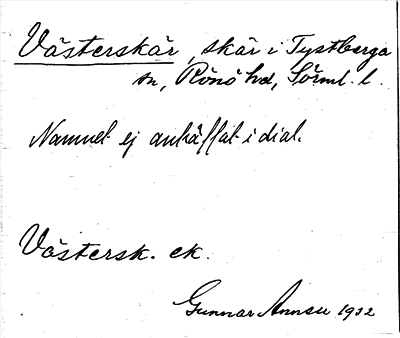 Västerskär, skär i Tystberga
sn, Rönö hd, Sörml. l.
Namnet ej anträffat i dial.
Västersk. ek.
Gunnar Annsu 1932